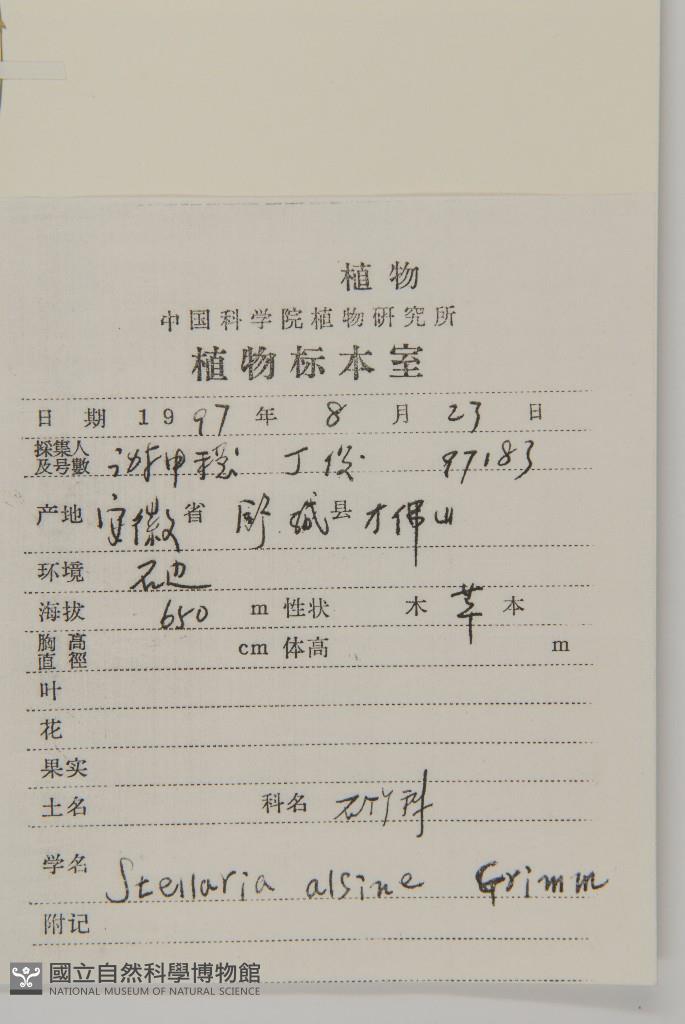 植物
中国科学院植物研究所
植物标本室
日期 1997年 8月 23日
採集人及号數 丁俊 97183
产地 安徽省 舒城县 才佛山
环境 石边
海拔 650 m 性状 木 草 本
胸高直徑 cm 体高 m
叶
花
果实
土名 科名 石竹科
学名 Stellaria alsine Grimm
附记
國立自然科學博物館
NATIONAL MUSEUM OF NATURAL SCIENCE